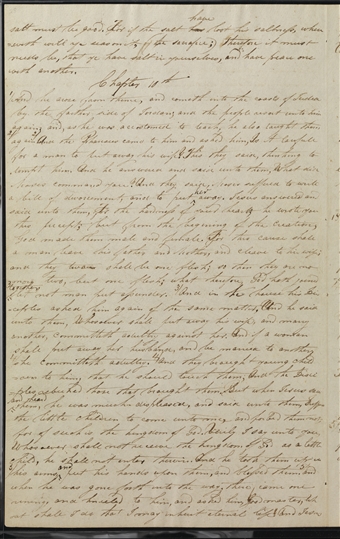 have
salt must be good. For if the salt has lost his saltness, where
with will ye season it, (the sacrifice;) Therefore it must
needs be, that ye have salt in yourselves, and have peace one
with another.
Chapter 10th
And he arose from thence, and cometh into the coasts of Judea
by the farther side of Jordan; and the people resort unto him
again; and, as he was accustomed to teach, he also taught them
again. And the Pharisees came to him and asked him, Is it lawful
for a man to put away his wife? This they said, thinking to
tempt him. And he answered and said unto them, What did
Moses command you? And they said, Moses suffered to write
a bill of divorcement, and to put her away. Jesus answered and
said unto them, For the hardness of your heart he wrote you
this precept; But from the beginning of the creation,
God made them male and female. For this cause shall
a man leave his father and mother, and cleave to his wife;
and they shall be one flesh; so then they are no
more two, but one flesh; what therefore God hath joined
together let not man put asunder. And in the house his dis
ciples asked him again of the same matter. And he said
unto them, Whosoever shall put away his wife, and marry
another, committeth adultery against her. And if a woman
shall put away her husband, and be married to another,
she committeth adultery. And they brought young child
ren to him, that he should touch them; And the disci
ples rebuked those that brought them. But when Jesus saw
and heard
them, he was much displeased, and said unto them, Suffer
the little children to come unto me, and forbid them not;
for of such is the kingdom of God. Verily I say unto you,
Whosoever shall not receive the kingdom of God as a little
child, he shall not enter therein. And he took them up in
and
his arms, put his hands upon them, and blessed them; and
when he was gone forth into the way, there came one
running, and kneeled to him, and asked him, Good master, wh
at shall I do that I may inherit eternal life? And Jesus